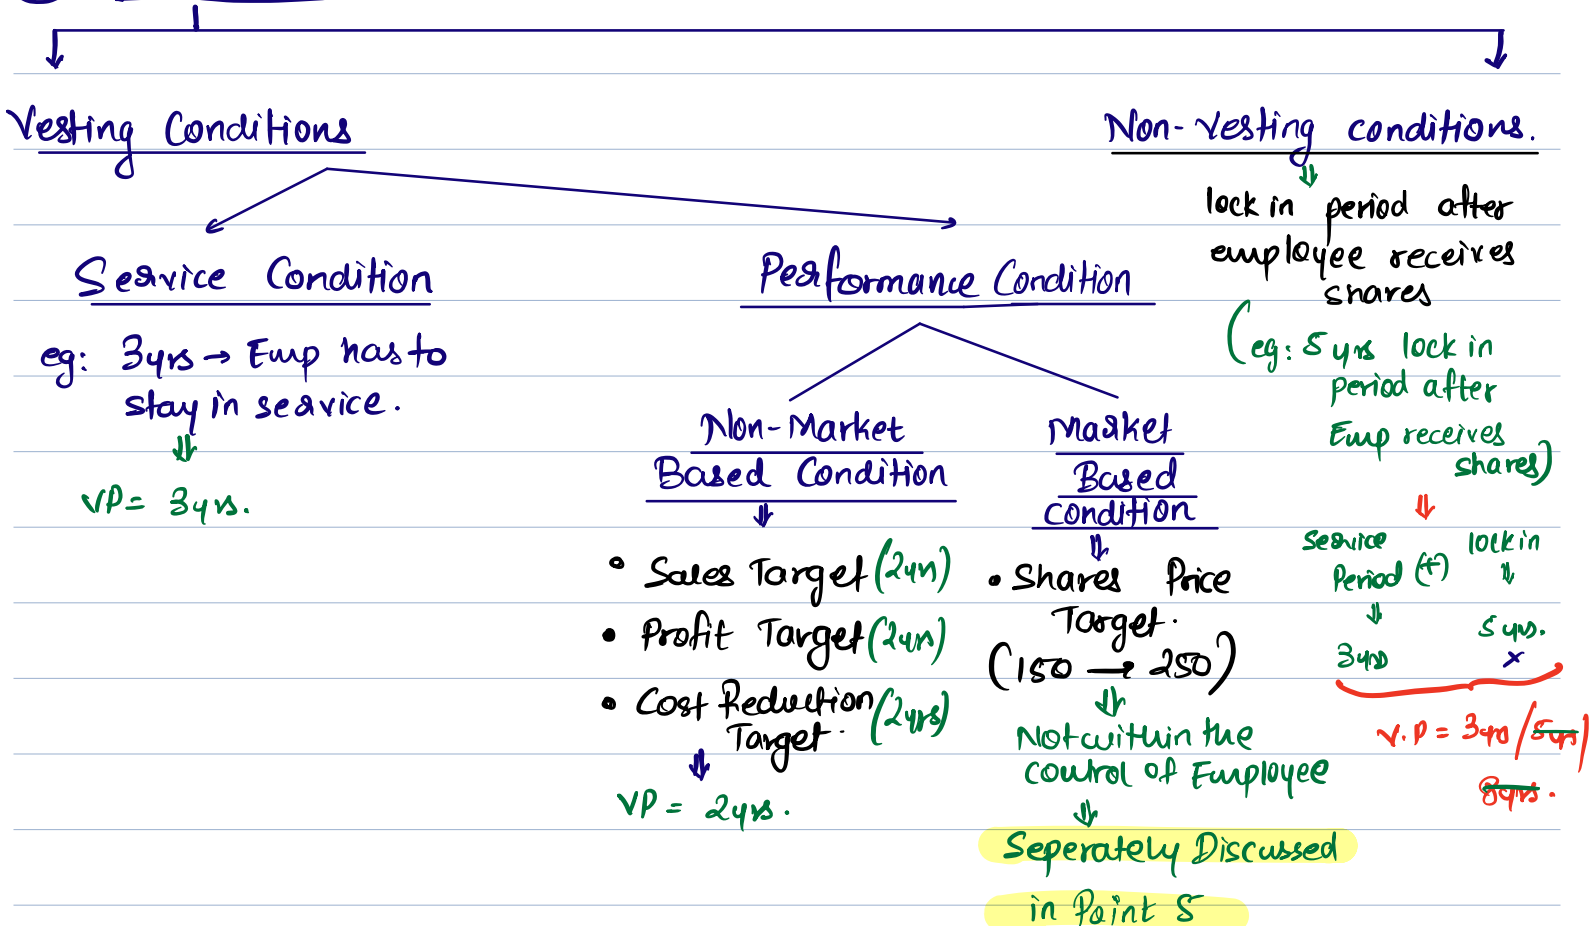 Vesting Conditions
Service Condition
eg: 3yrs → Emp has to
stay in service.
VP = 3yrs.
Performance Condition
Non-Market
Based Condition
• Sales Target (2yrs)
• Profit Target (2yrs)
• Cost Reduction (2yrs)
Target.
VP = 2yrs.
Market
Based
Condition
• Shares Price
Target.
(150 → 250)
Not within the
control of Employee
Seperately Discussed
in Point 5
Non-Vesting conditions.
lock in period after
employee receives
shares
(eg: 5 yrs lock in
period after
Emp receives
shares)
Service lock in
Period (+)
5 yrs.
3yrs x
V.P = 3yrs / 5yrs /
8yrs.